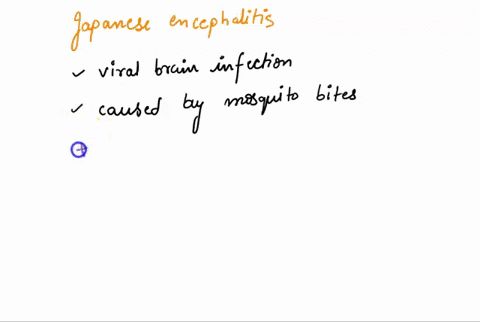 Japanese encephalitis
✓ viral brain infection
✓ caused by mosquito bites